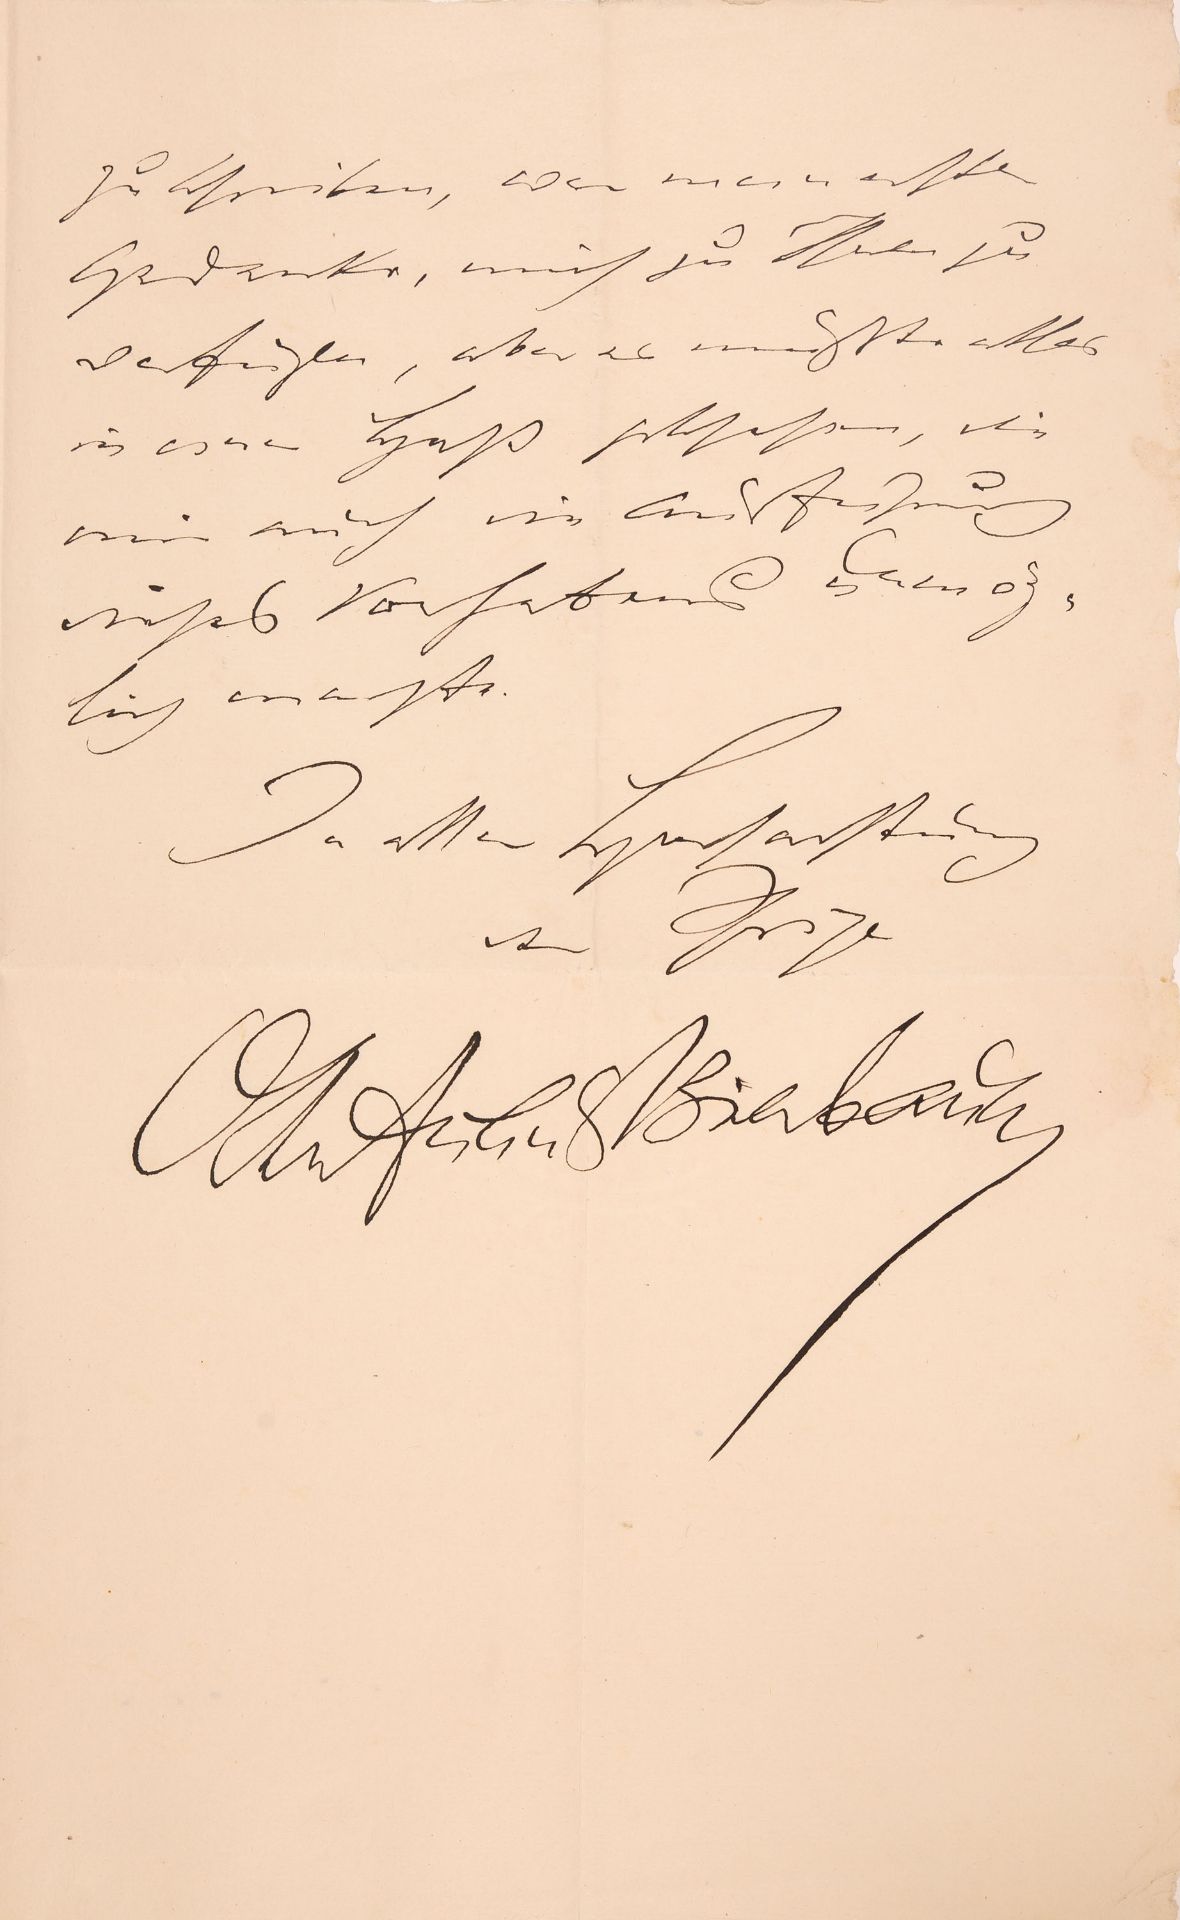 zu schreiben, war mein erster
Gedanke, mich zu Ihnen zu
verfügen, aber es mußte alles
in einer Hast geschehen, die
mir auch die Ausführung
dieses Vorhabens unmög-
lich machte.
In aller Hochachtung
der Ihrige
Otto Julius Bierbaum